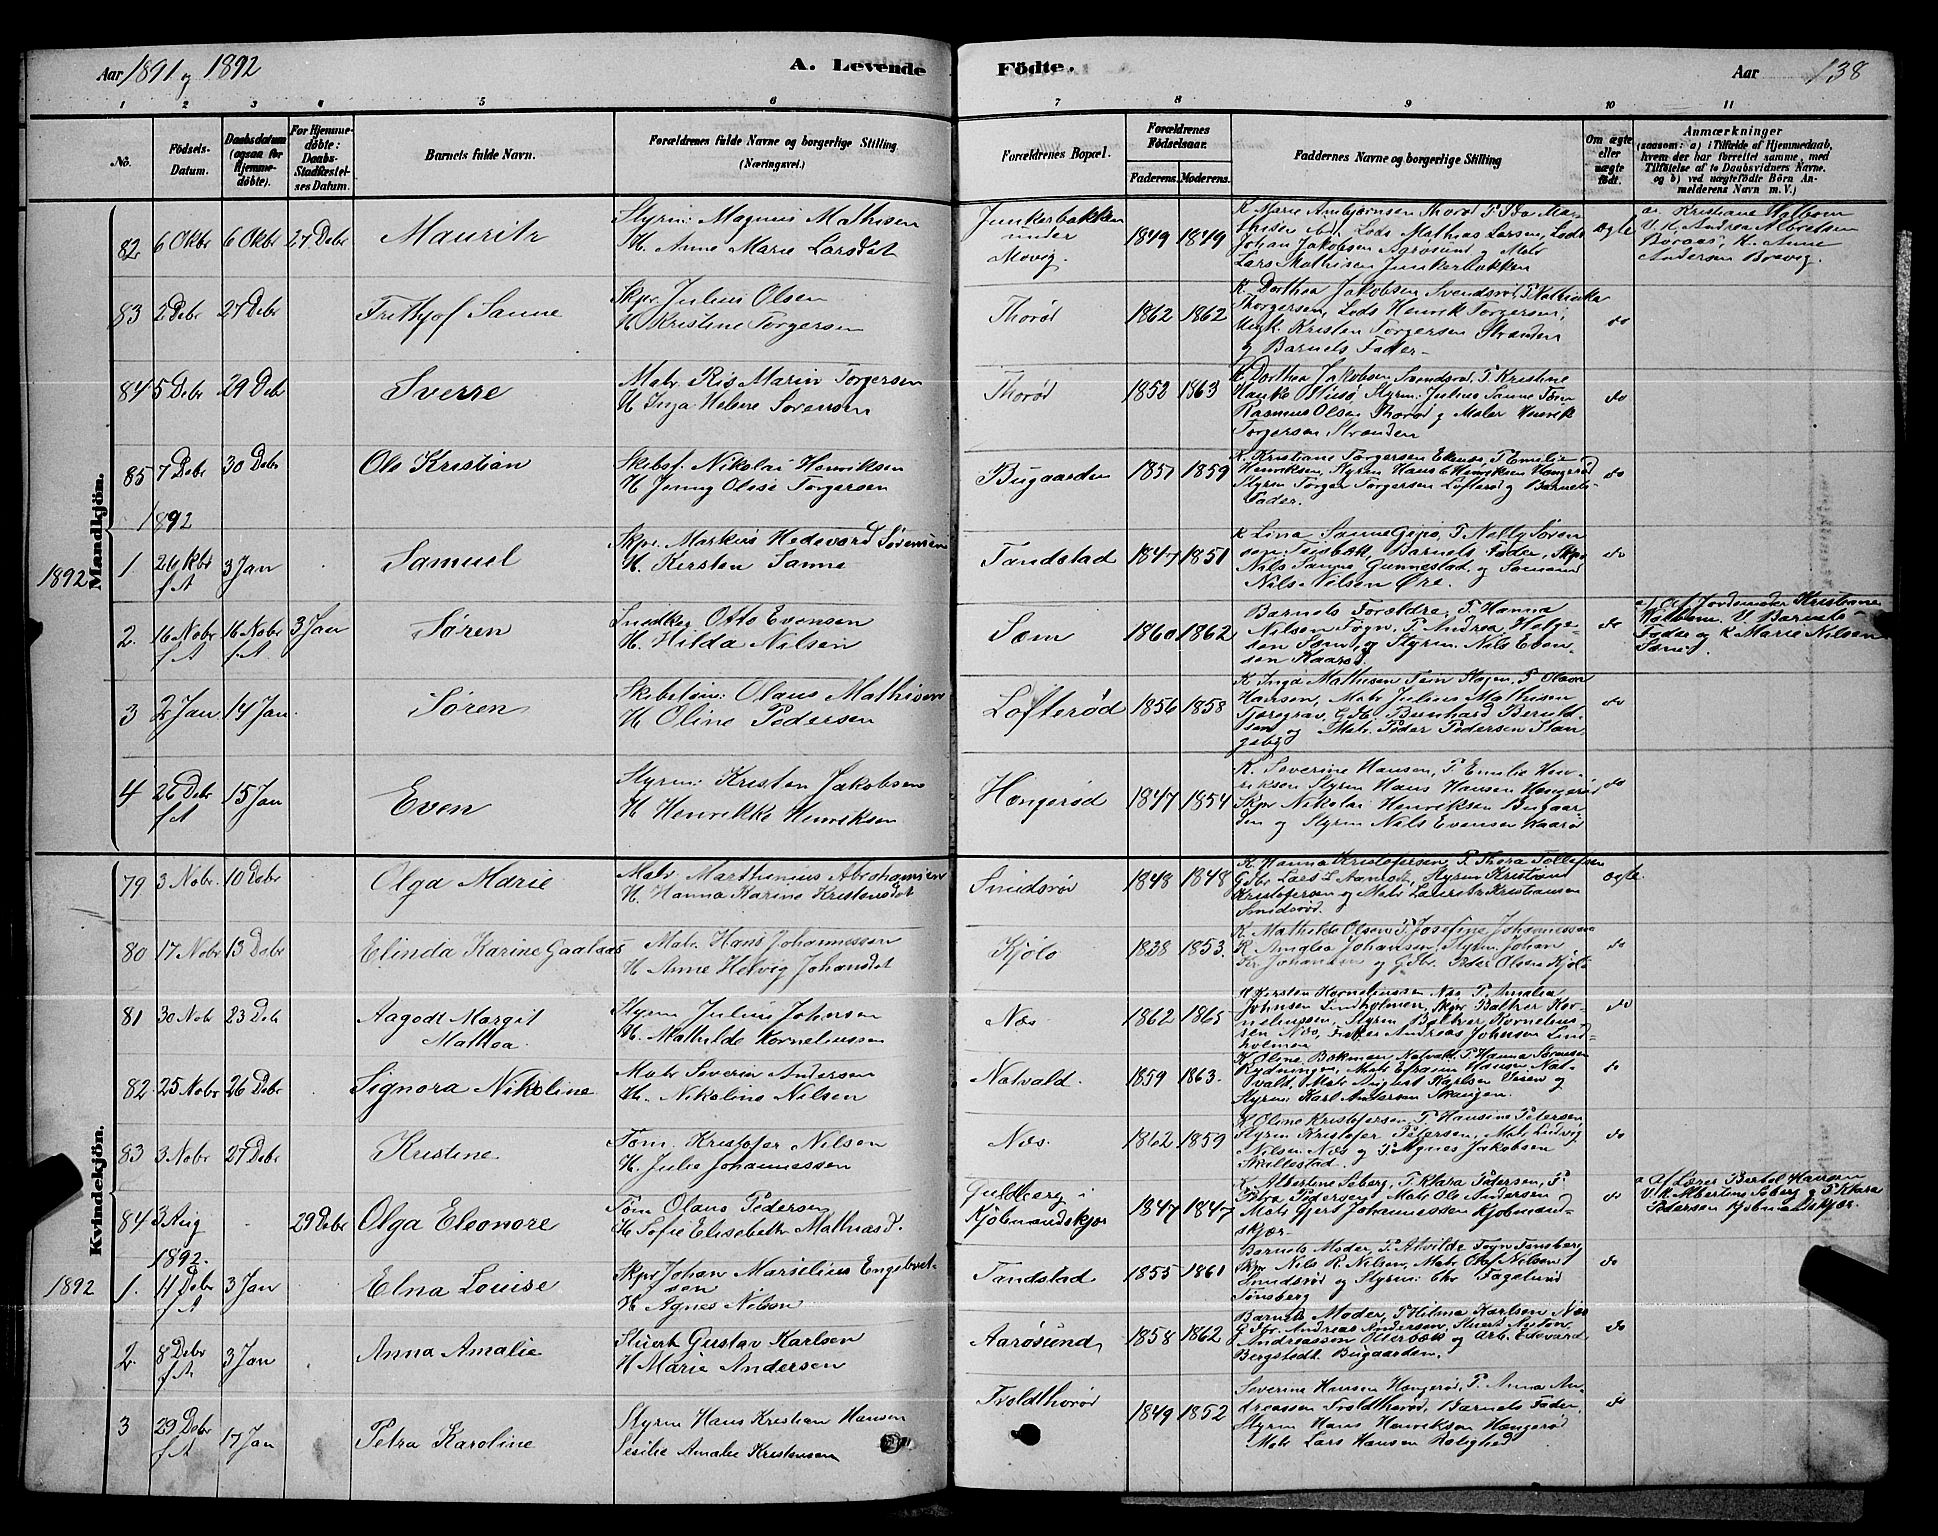 Aar 1891 og 1892
A. Levende Födte.
Aar 138
1 2 3 4 5 6 7 8 9 10 11
No.
Födsels-Datum.
Daabsdatum (ogsaa for Hjemme-døbte).
For Hjemme-døbte: Daabs-Stadfæstel-ses Datum.
Barnets fulde Navn.
Forældrenes fulde Navne og borgerlige Stilling (Næringsvei.)
Forældrenes Bopæl.
Forældrenes Födselsaar.
Faderens. Moderens.
Faddernes Navne og borgerlige Stilling
Om ægte eller uægte født.
Anmærkninger
(saasom: a) i Tilfælde af Hjemmedaab, hvem der har forrettet samme, med Tilföielse af to Daabsvidners Navne, og b) ved uægtefödte Börn An-melderens Navn m. V.)
Mandkjön.
82 6 Okbr 6 Okbr 27 Debr Mauritz
Styrm: Magnus Mathisen
H. Anne Marie Larsdat
Junkerbakken under Movig.
1849 1849
K Marie Ambjørnsen Thorød P. Ida Ma-
thisen Lods Mathias Larsen, Lods
Johan Jakobsen Aarøsund og Matr
Lars Mathisen Junkerbakken
Ægte
a. Kristiane Holbom
V. K. Andrea Albretsen
Borgaas, K. Anne
Andersen Brevig.
83 2 Debr 27 Debr Frithjof Sanne
Skpr. Julius Olsen
H Kristine Torgersen
Thorød
1862 1862
K Dorthea Jakobsen Svendsrød, P. Mathilde
Thorgersen, Lods Henrik Torgersen,
Ungk Kristen Torgersen Stranden
og Barnets Fader
do
84 5 Debr 29 Debr Sverre
Matr Ris Marin Torgersen
H Inga Helene Sørensen
Thorød
1852 1863
K. Dorthea Jakobsen Svendsrød, P Kristine
Styrm: Julius Sanne Tøm
Rasmus Olsen Thorød og Maler Henrik
Torgersen Stranden
do
85 7 Debr 30 Debr Ole Kristian
Skibsf. Nikolai Henriksen
H Jenny Olise Torgersen
Bugaarden
1857 1859
K. Kristiane Torgersen Ekenes, P. Emilie
Henriksen, Styrm Hans Henriksen Hængerød
Styrm Torger Torgersen Lofterød og Barnets
Fader.
do
1892
1892
1 26 Okbr f.A 3 Jan Samuel
Skpr. Markus Hedevard Sørensen
H. Kirsten Sanne
Tandstad
1847 1851
K Lina Sanne Gipø, P Nelly Søren
sen Teisbæk, Barnets Fader, Skpr
Nils Sanne Gunnestad og Sømand
Nils Nilsen Øre.
do
2. 16 Nobr f.A 16 Nobr f.A. 3 Jan Søren
Snedker Otto Evensen
H. Hilda Nilsen
Sæm
1860 1862
Barnets Forældre, P. Hanna
Nilsen Tøgn, P. Andrea Helge-
sen Sæm, og Styrm. Nils Even-
sen Kaarød
do
a/ af Jordemoder Kristiane
Holbom. V. Barnets
Fader og K Marie Nilsen
Sæm
3 2 Jan 14 Jan. Søren
Skibstøm: Olaus Mathisen
H Oline Pedersen
Lofterød
1856 1858
K Inga Mathisen Tem Hagen, P Olava
Hansen, Matr Julius Mathisen
Tjæregrav, Gdbr. Bernhard Berntd-
sen og Matr. Peder Pedersen Stan-
geby
do
4 26 Debr f.A 15 Jan Even
Styrm: Kristen Jakobsen
H Henrikke Henriksen
Hængerød
1847 1854
K. Severine Hansen, P. Emilie Hen-
riksen Styrm Hans Hansen Hængerød
Skpr Nikolai Henriksen Bugaar-
den og Styrm Nils Evensen Kaarø
do
Kvindekjön.
79 3 Nobr. 10 Debr Olga Marie
Matr Marthinius Abrahamsen
H. Hanna Karine Kristensdat
Smidsrød
1848 1848
K. Hanna Kristofersen, P. Thora Tollefsen
Gdbr Lars L Aamodt, Styrm Kristian
Kristofersen og Matr Lauritz Kristiansen
Smidsrød.
ægte.
80 17 Nobr 13 Debr Elinda Karine Gaalaas
Matr. Hans Johannessen
H Anne Helvig Johansdat
Kjølø
1838 1853.
K. Mathilde Olsen, P. Josefine Johannessen
K Amalia Johansen, Styrm. Johan
Kr Johansen og Gdbr. Peder Olsen Kjølø
do
81 30 Nobr 23 Debr Aagodt Margit Mathea
Styrm Julius Johnsen
H. Mathilde Kornelinssen
Næs
1862 1865
K Kirsten Kornelinssen Næs P. Amalia
Johnsen Lindholmen, Skpr Balther Kor-
nelinssen, Styrm Balther Kornelins-
sen Næs, Fisker Andreas Johnsen Lind-
holmen
do
82 25 Nobr 26 Debr Signora Nikoline
Matr Severin Andersen
H. Nikoline Nilsen
Natvald.
1859 1863.
K Oline Bokman Natvald, P. Hanna Sørensen
Rydningen, Matr Efraim Hansen Nat-
vald, Matr August Karlsen Veien og
Styrm: Karl Andersen Skaugen.
do
83 3 Nobr 27 Debr Kristine
Tøm. Kristofer Nilsen
H. Julie Johannessen
Næs.
1862 1859
K Oline Kristofersen, P. Hansine Petersen
Styrm Kristofer Petersen, Matr Ludvig
Nilsen Næs og P. Agnes Jakobsen
Skallestad.
do
84 3 Aug 29 Debr Olga Eleonore
Tøm Olaus Pedersen
H. Sofie Elisebeth Mathiasd.
Guldberg i Kjøbmandskjær
1847 1847
K. Albertine Søberg, P. Klara Pedersen, P.
Petra Pedersen, Matr Ole Andersen og
Matr Gjert Johannessen Kjøbmand-
skjær
do
a Af Lærer Bertel Hansen
V. K. Albertine Søberg og P. Klara
Petersen Kjøbmandskjær.
1892.
1892
1. 11 Debr f.A 3 Jan Elna Louise
Skpr Johan Marselius Engebret-
sen
H. Agnes Nilsen
Tandstad
1855 1861
Barnets Moder, P. Alvilde Tøgn Tønsberg
Skpr Nils R. Nilsen, Matr Olaf Nilsen
Smidsrød og Styrm: Chr Fagelund
Tønsberg
do
2. 8 Debr f.A. 3 Jan Anna Amalie
Stuert Gustav Karlsen
H Marie Andersen
Aarøsund
1858 1862
Barnets Moder, P Hilma Karlsen Næs
Gdbr. Andreas Andersen, Stuert Anton
Andreassen Otterbæk og Arb. Edevard
Bergstedt Bugaarden.
do
3 29 Debr f.A 17 Jan Petra Karoline
Styrm Hans Kristian Hansen
Sesilie Amalie Kristensen
Tvoldthorød
1849 1852
Severine Hansen Hængerød, P. Anna An-
dreassen Tvoldthorød, Barnets Fader,
Styrm Hans Henriksen Hængerød
Matr Lars Hansen Rolighed
do